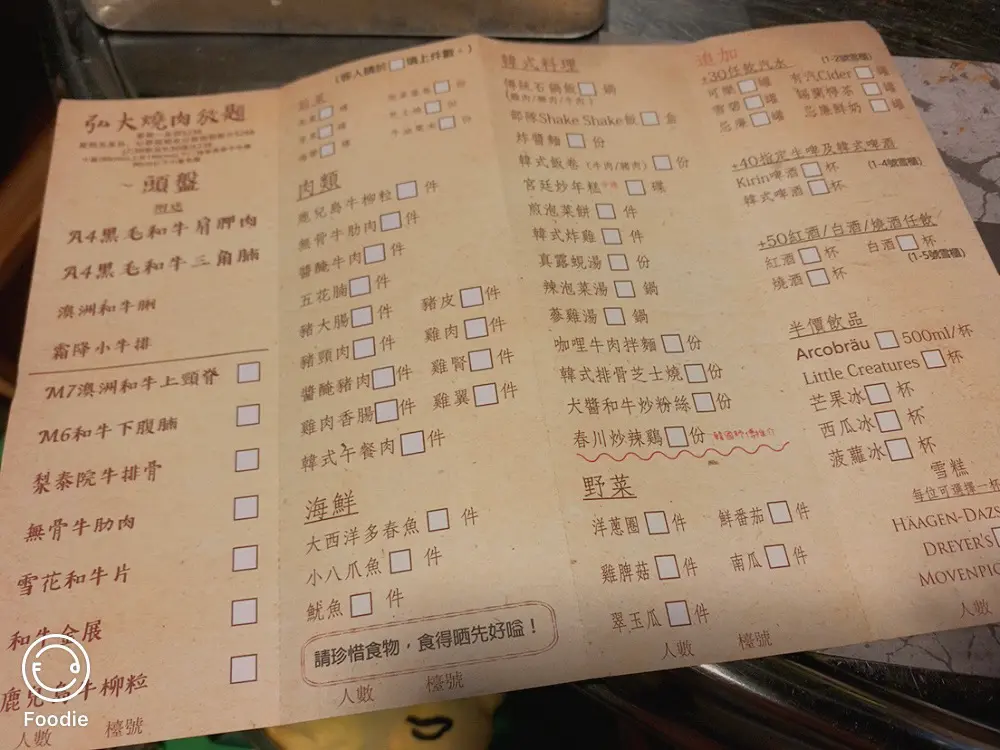 弘大燒肉放題
頭盤
A4黑毛和牛肩胛肉
A4黑毛和牛三角腩
澳洲和牛脷
霜降小牛排
M7澳洲和牛上頸脊
M6和牛下腹腩
梨泰院牛排骨
無骨牛肋肉
雪花和牛片
和牛金展
鹿兒島牛柳粒
人數 檯號
(客人請於□填上件數。)
肉類
鹿兒島牛柳粒 件
無骨牛肋肉 件
醬醃牛肉 件
五花腩 件
豬大腸 件 豬皮 件
豬頸肉 件 雞肉 件
醬醃豬肉 件 雞腎 件
雞肉香腸 件 雞翼 件
韓式午餐肉 件
海鮮
大西洋多春魚 件
小八爪魚 件
魷魚 件
請珍惜食物，食得晒先好嗌！
人數 檯號
韓式料理
傳統石鍋飯 鍋
(雞肉/豬肉/牛肉)
部隊Shake Shake飯 盒
炸醬麵 份
韓式飯卷 (牛肉/豬肉) 份
宮廷炒年糕 碟
煎泡菜餅 件
韓式炸雞 件
真露蜆湯 份
辣泡菜湯 鍋
蔘雞湯 鍋
咖哩牛肉拌麵 份
韓式排骨芝士燒 份
大醬和牛炒粉絲 份
春川炒辣鷄 份
野菜
洋蔥圈 件 鮮番茄 件
雞脾菇 件 南瓜 件
翠玉瓜 件
人數 檯號
追加
+30任飲汽水 (1-2號雪櫃)
可樂 罐 有汽Cider 罐
雪碧 罐
忌廉 罐 忌廉鮮奶 罐
+40指定生啤及韓式啤酒
(1-4號雪櫃)
Kirin啤酒 杯
韓式啤酒 杯
+50紅酒/白酒/燒酒任飲
紅酒 杯 白酒 杯
燒酒 杯 (1-5號雪櫃)
半價飲品
Arcobräu 500ml/杯
Little Creatures 杯
芒果冰 杯
西瓜冰 杯
菠蘿冰 杯
雪糕
每位可選擇一杯
HÄAGEN-DAZS
DREYER'S
MOVENPIC
人數
Foodie